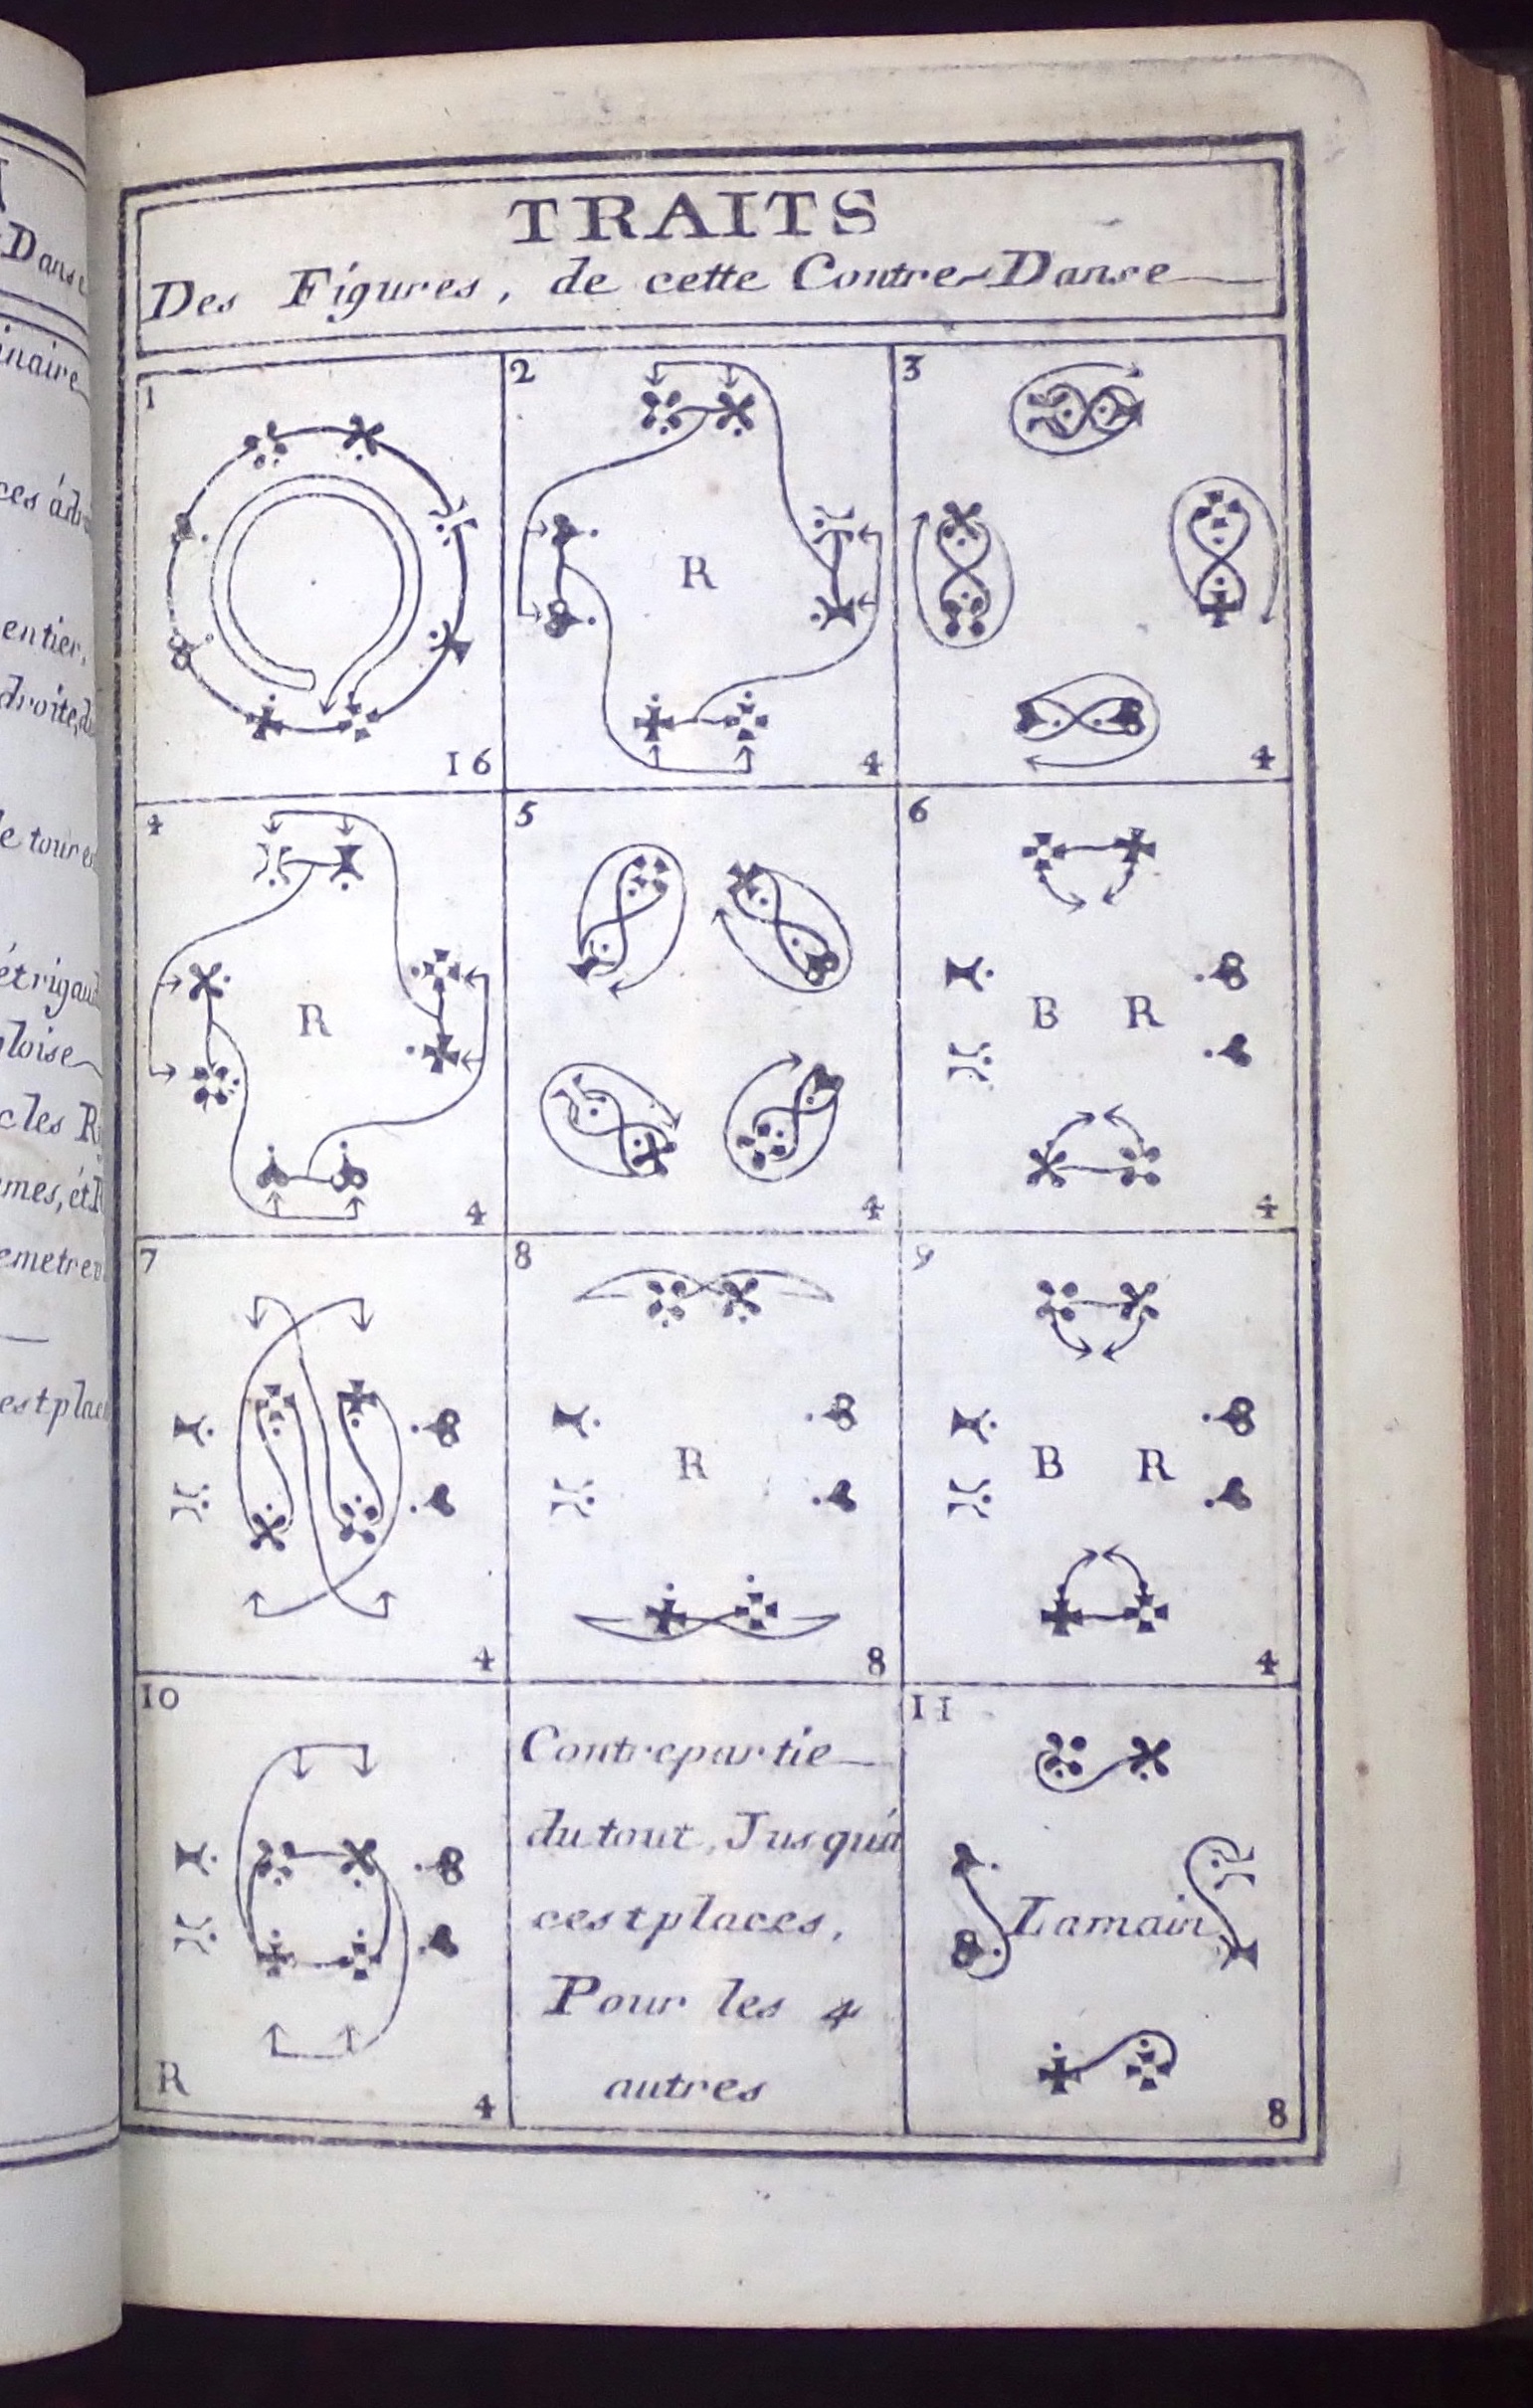 TRAITS
Des Figures, de cette Contre-Danse
1
16
2
R
4
3
4
4
R
4
5
4
6
B R
4
7
4
8
R
8
9
B R
4
10
R
4
Contrepartie
du tout, Jusqu'à
cest places,
Pour les 4
autres
11
Lamain
8
Danse
inaire
entier,
droite, d
le tour e
étrigau
loise
c les R
mes, ét
emetre
est plac